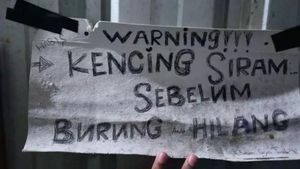 WARNING!!!
KENCING SIRAM...
SEBELUM
BURUNG HILANG